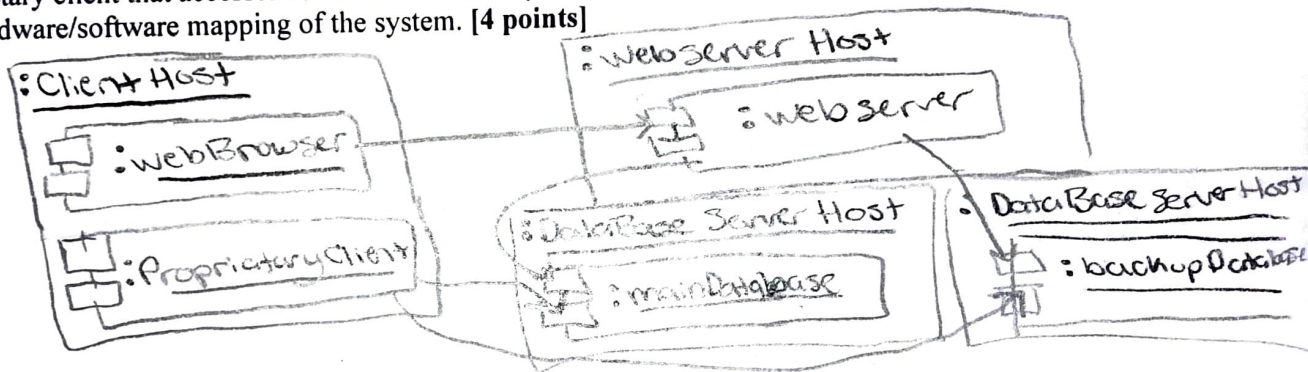 dware/software mapping of the system. [4 points]
:Client Host
:webBrowser
:PropriataryClient
:webserver Host
:webserver
:DataBase Server Host
:mainDatabase
:DataBase ServerHost
:backupDatabase